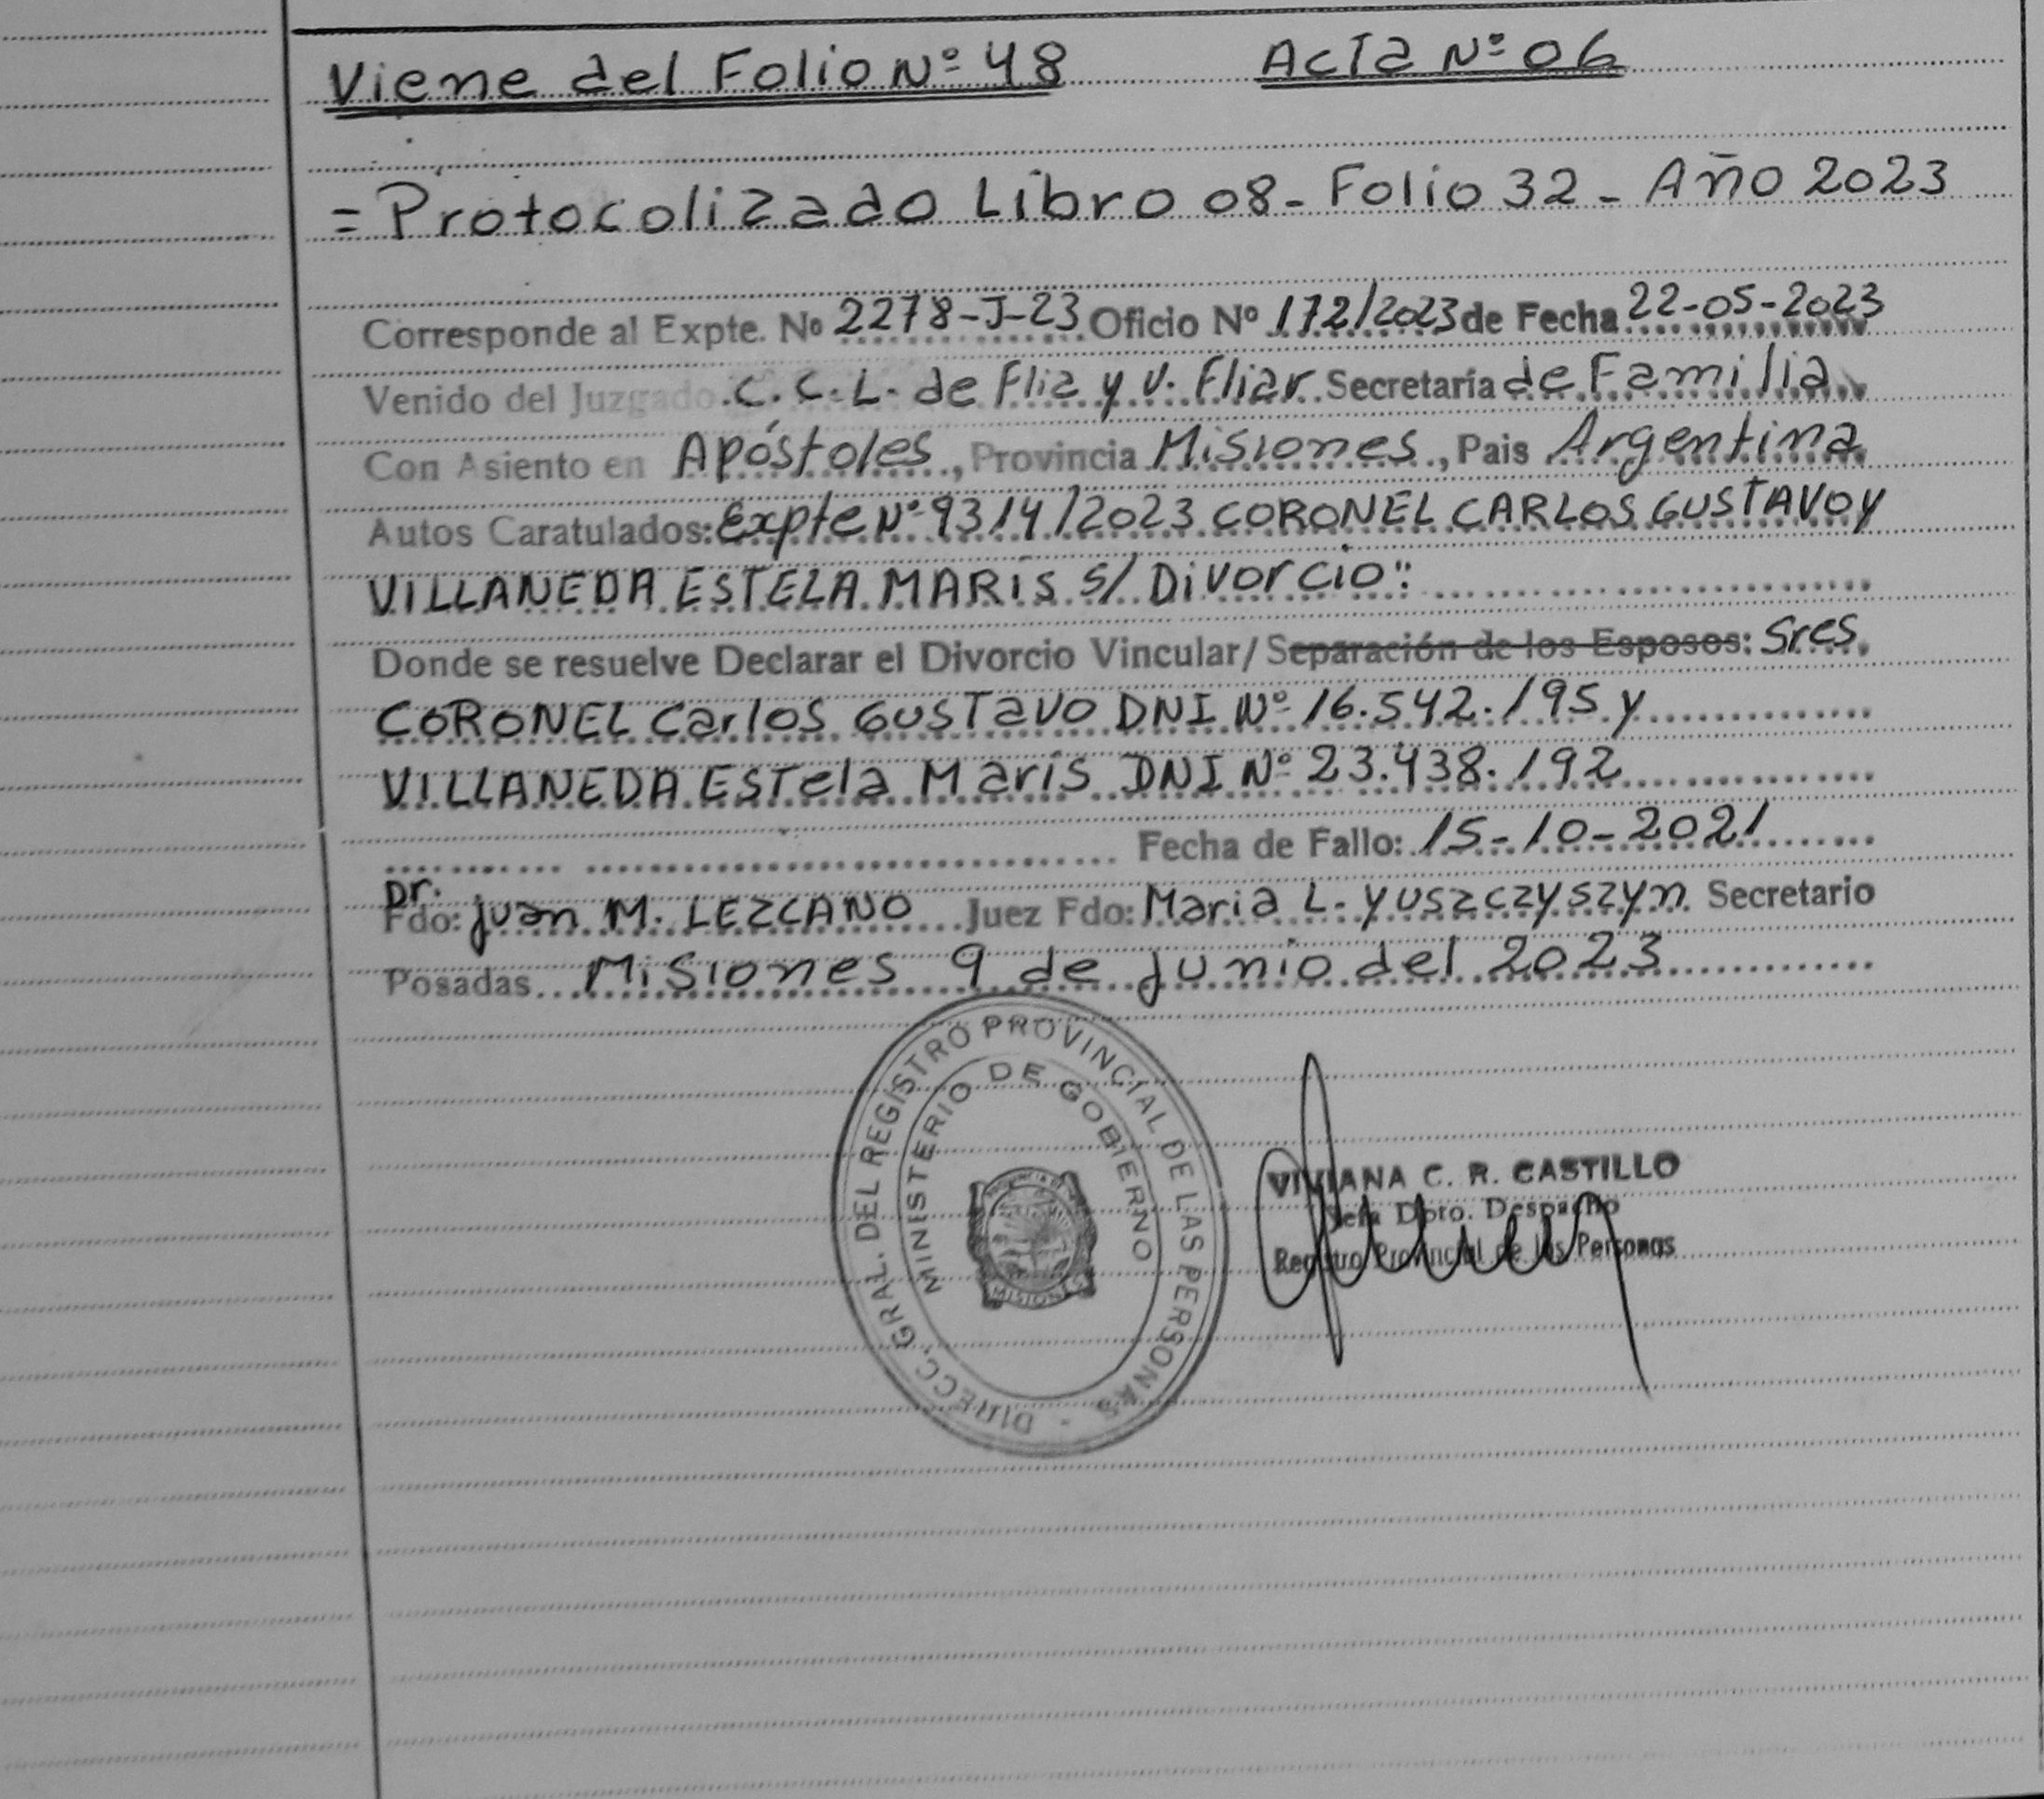 Viene del Folio Nº 48 Acta Nº 06
= Protocolizado Libro 08 - Folio 32 - Año 2023
Corresponde al Expte. Nº 2278-J-23 Oficio Nº 172/2023 de Fecha 22-05-2023
Venido del Juzgado C. C. L. de Flia y V. Fliar Secretaría de Familia
Con Asiento en Apóstoles, Provincia Misiones, Pais Argentina
Autos Caratulados: Expte Nº 9314/2023 CORONEL CARLOS GUSTAVO y
VILLANEDA ESTELA MARIS S/ Divorcio":
Donde se resuelve Declarar el Divorcio Vincular/ Separación de los Esposos: Sres.
CORONEL Carlos GUSTavo DNI Nº 16.542.195 y
VILLANEDA ESTela Maris DNI Nº 23.438.192
Fecha de Fallo: 15-10-2021
Dr.
Fdo: Juan M. LEZCANO Juez Fdo: Maria L. Yuszczyszyn Secretario
Posadas Misiones 9 de junio del 2023
DIRECC. GRAL. DEL REGISTRO PROVINCIAL DE LAS PERSONAS
MINISTERIO DE GOBIERNO
MISIONES
VIVIANA C. R. CASTILLO
Jefa Dpto. Despacho
Registro Provincial de las Personas